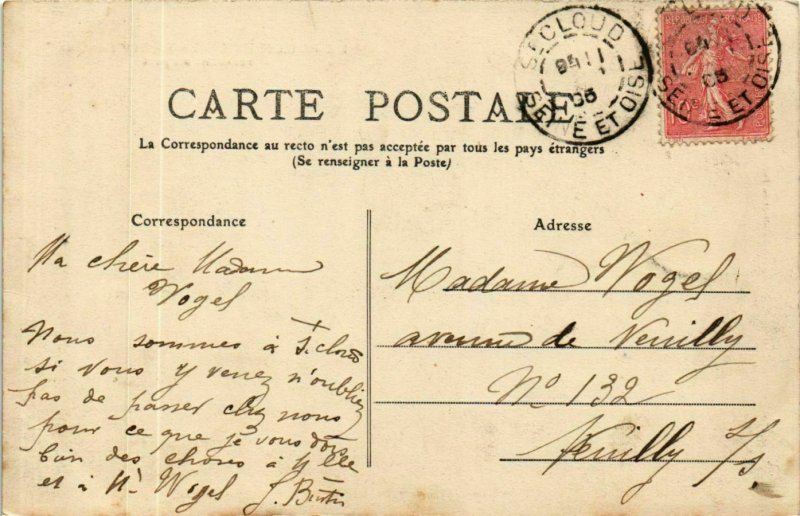 CARTE POSTALE
La Correspondance au recto n'est pas acceptée par tous les pays étrangers
(Se renseigner à la Poste)
Correspondance
Ma chère Madame
Vogel
Nous sommes à St cloud
si vous y venez n'oubliez
pas de passer chez nous
pour ce que je vous dois
bien des choses à Mlle
et à Mr Vogel J.
Adresse
Madame Vogel
avenue de Neuilly
No 132
Neuilly s/s.
ST CLOUD
11
05
SEINE ET OISE
REPUBLIQUE FRANÇAISE
05
SEINE ET OISE